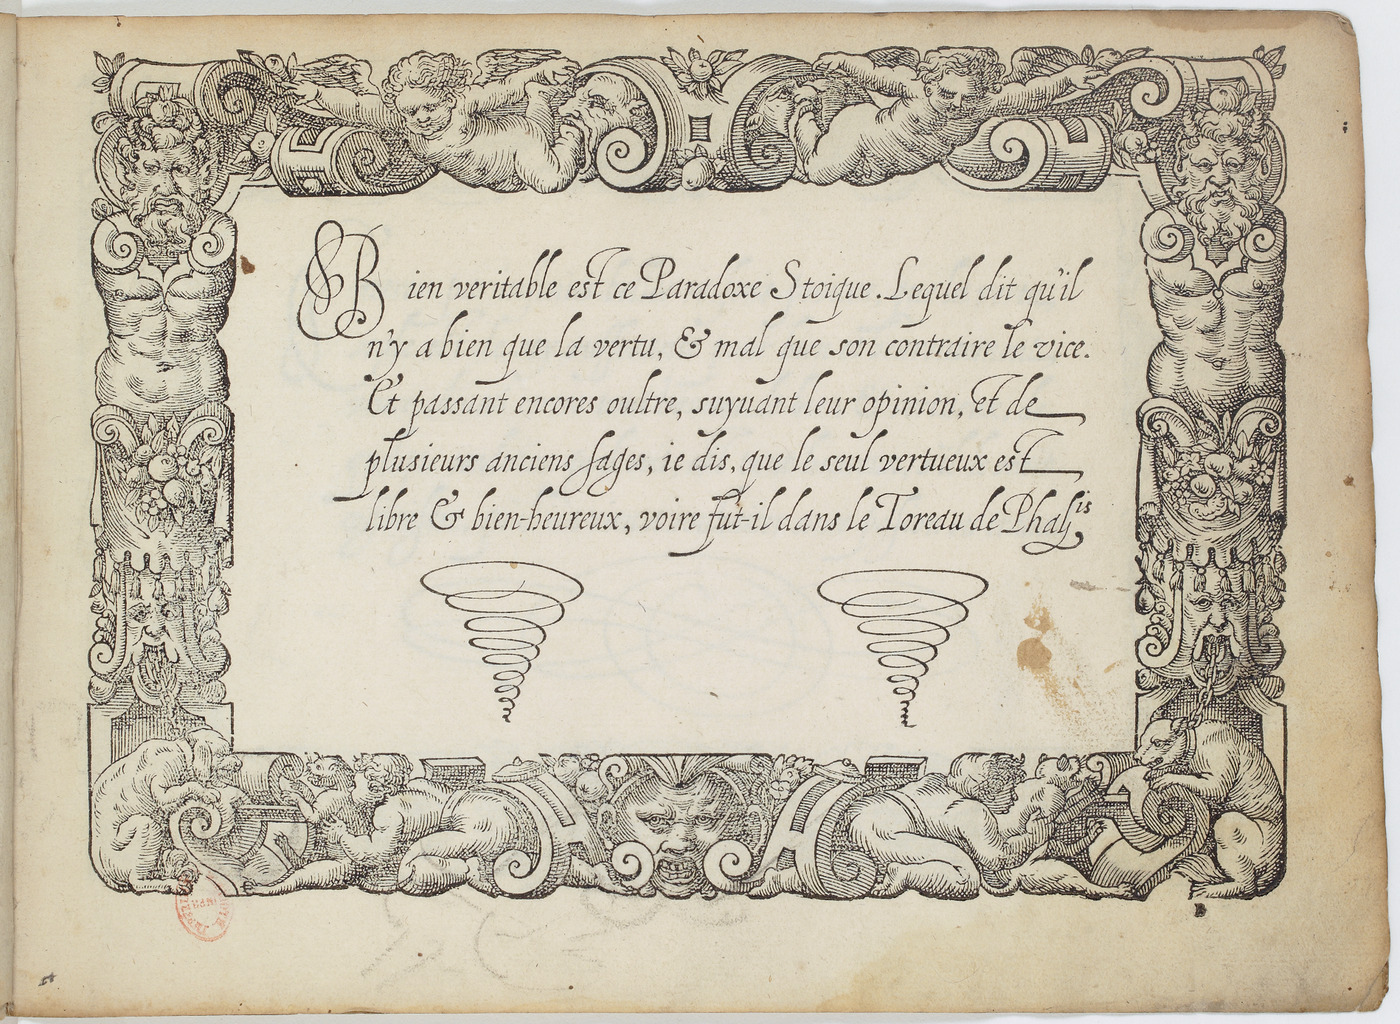 Bien veritable est ce Paradoxe Stoique. Lequel dit qu'il
n'y a bien que la vertu, & mal que son contraire le vice.
Et passant encores oultre, suyuant leur opinion, et de
plusieurs anciens sages, ie dis, que le seul vertueux est
libre & bien-heureux, voire fut-il dans le Toreau de Phalis
B